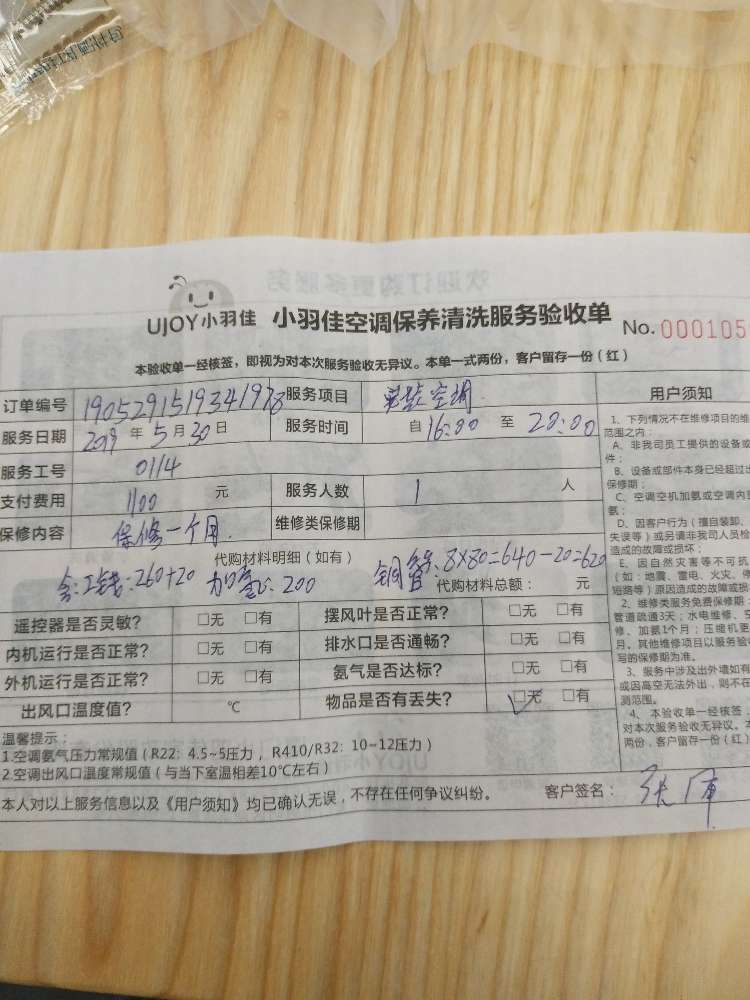 UJOY小羽佳 小羽佳空调保养清洗服务验收单 No. 000105
本验收单一经核签，即视为对本次服务验收无异议。本单一式两份，客户留存一份（红）
订单编号 1905291519341978 服务项目 安装空调 用户须知
服务日期 2019 年 5 月 30 日 服务时间 自 16:00 至 20:00
服务工号 0114
支付费用 1100 元 服务人数 1 人
保修内容 保修一个月 维修类保修期
代购材料明细（如有）
工钱:260+20 加氨:200 铜管:8X80=640-20=620
代购材料总额： 元
遥控器是否灵敏? □无 □有 摆风叶是否正常? □无 □有
内机运行是否正常? □无 □有 排水口是否通畅? □无 □有
外机运行是否正常? □无 □有 氨气是否达标? □无 □有
出风口温度值? ℃ 物品是否有丢失? □无 □有
温馨提示：
1.空调氨气压力常规值（R22：4.5~5压力， R410/R32：10-12压力）
2.空调出风口温度常规值（与当下室温相差10℃左右）
本人对以上服务信息以及《用户须知》均已确认无误，不存在任何争议纠纷。 客户签名：
1、下列情况不在维修项目的维
范围之内：
A、非我司员工提供的设备或
件；
B、设备或部件本身已经超过出
保修期；
C、空调空机加氨或空调内
氨；
D、因客户行为（擅自装卸、
失误等）或另请非我司人员检
造成的故障或损坏；
E、因自然灾害等不可抗
（如：地震、雷电、火灾、停
短路等）原因造成的故障或损
2、维修类服务免费保修期：
管道疏通3天；水电维修、空
修、加氨1个月；压缩机更
月。其他维修项目以服务验收
写的保修期为准。
3、服务中涉及出外墙如有
或因高空无法外出，则不在
测范围。
4、本验收单一经核签，
对本次服务验收无异议。本
两份，客户留存一份（红）